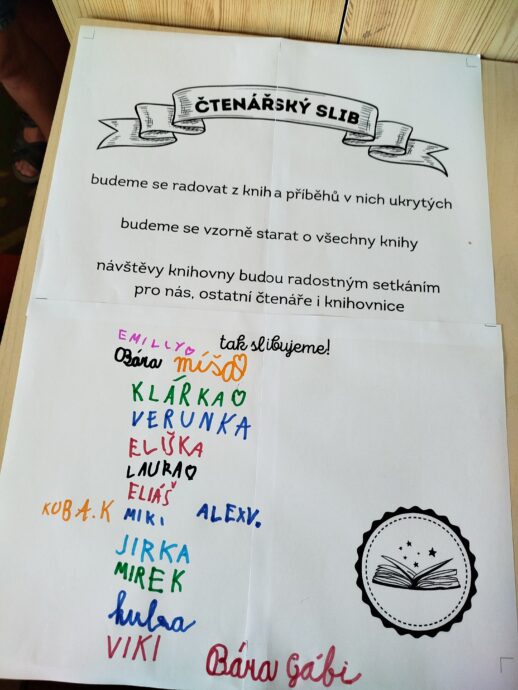 ČTENÁŘSKÝ SLIB
budeme se radovat z knih a příběhů v nich ukrytých
budeme se vzorně starat o všechny knihy
návštěvy knihovny budou radostným setkáním
pro nás, ostatní čtenáře i knihovnice
tak slibujeme!
EMILLY
Bára míša
KLÁRKA
VERUNKA
ELIŠKA
LAURA
ELIÁŠ
KUBA.K MIKI ALEXV.
JIRKA
MIREK
kuba
VIKI
Bára Gábi